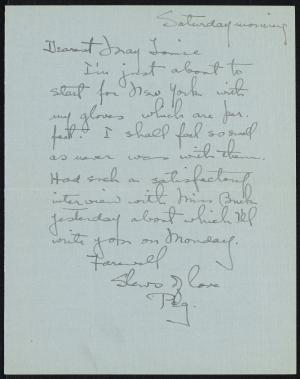 Saturday morning
Dearest May Louise
I'm just about to
start for New York with
my gloves which are per-
fect. I shall feel so swell
as never was with them.
Had such a satisfactory
interview with Miss
yesterday about which I'll
write you on Monday.
Farewell
Slews of love
Peg.